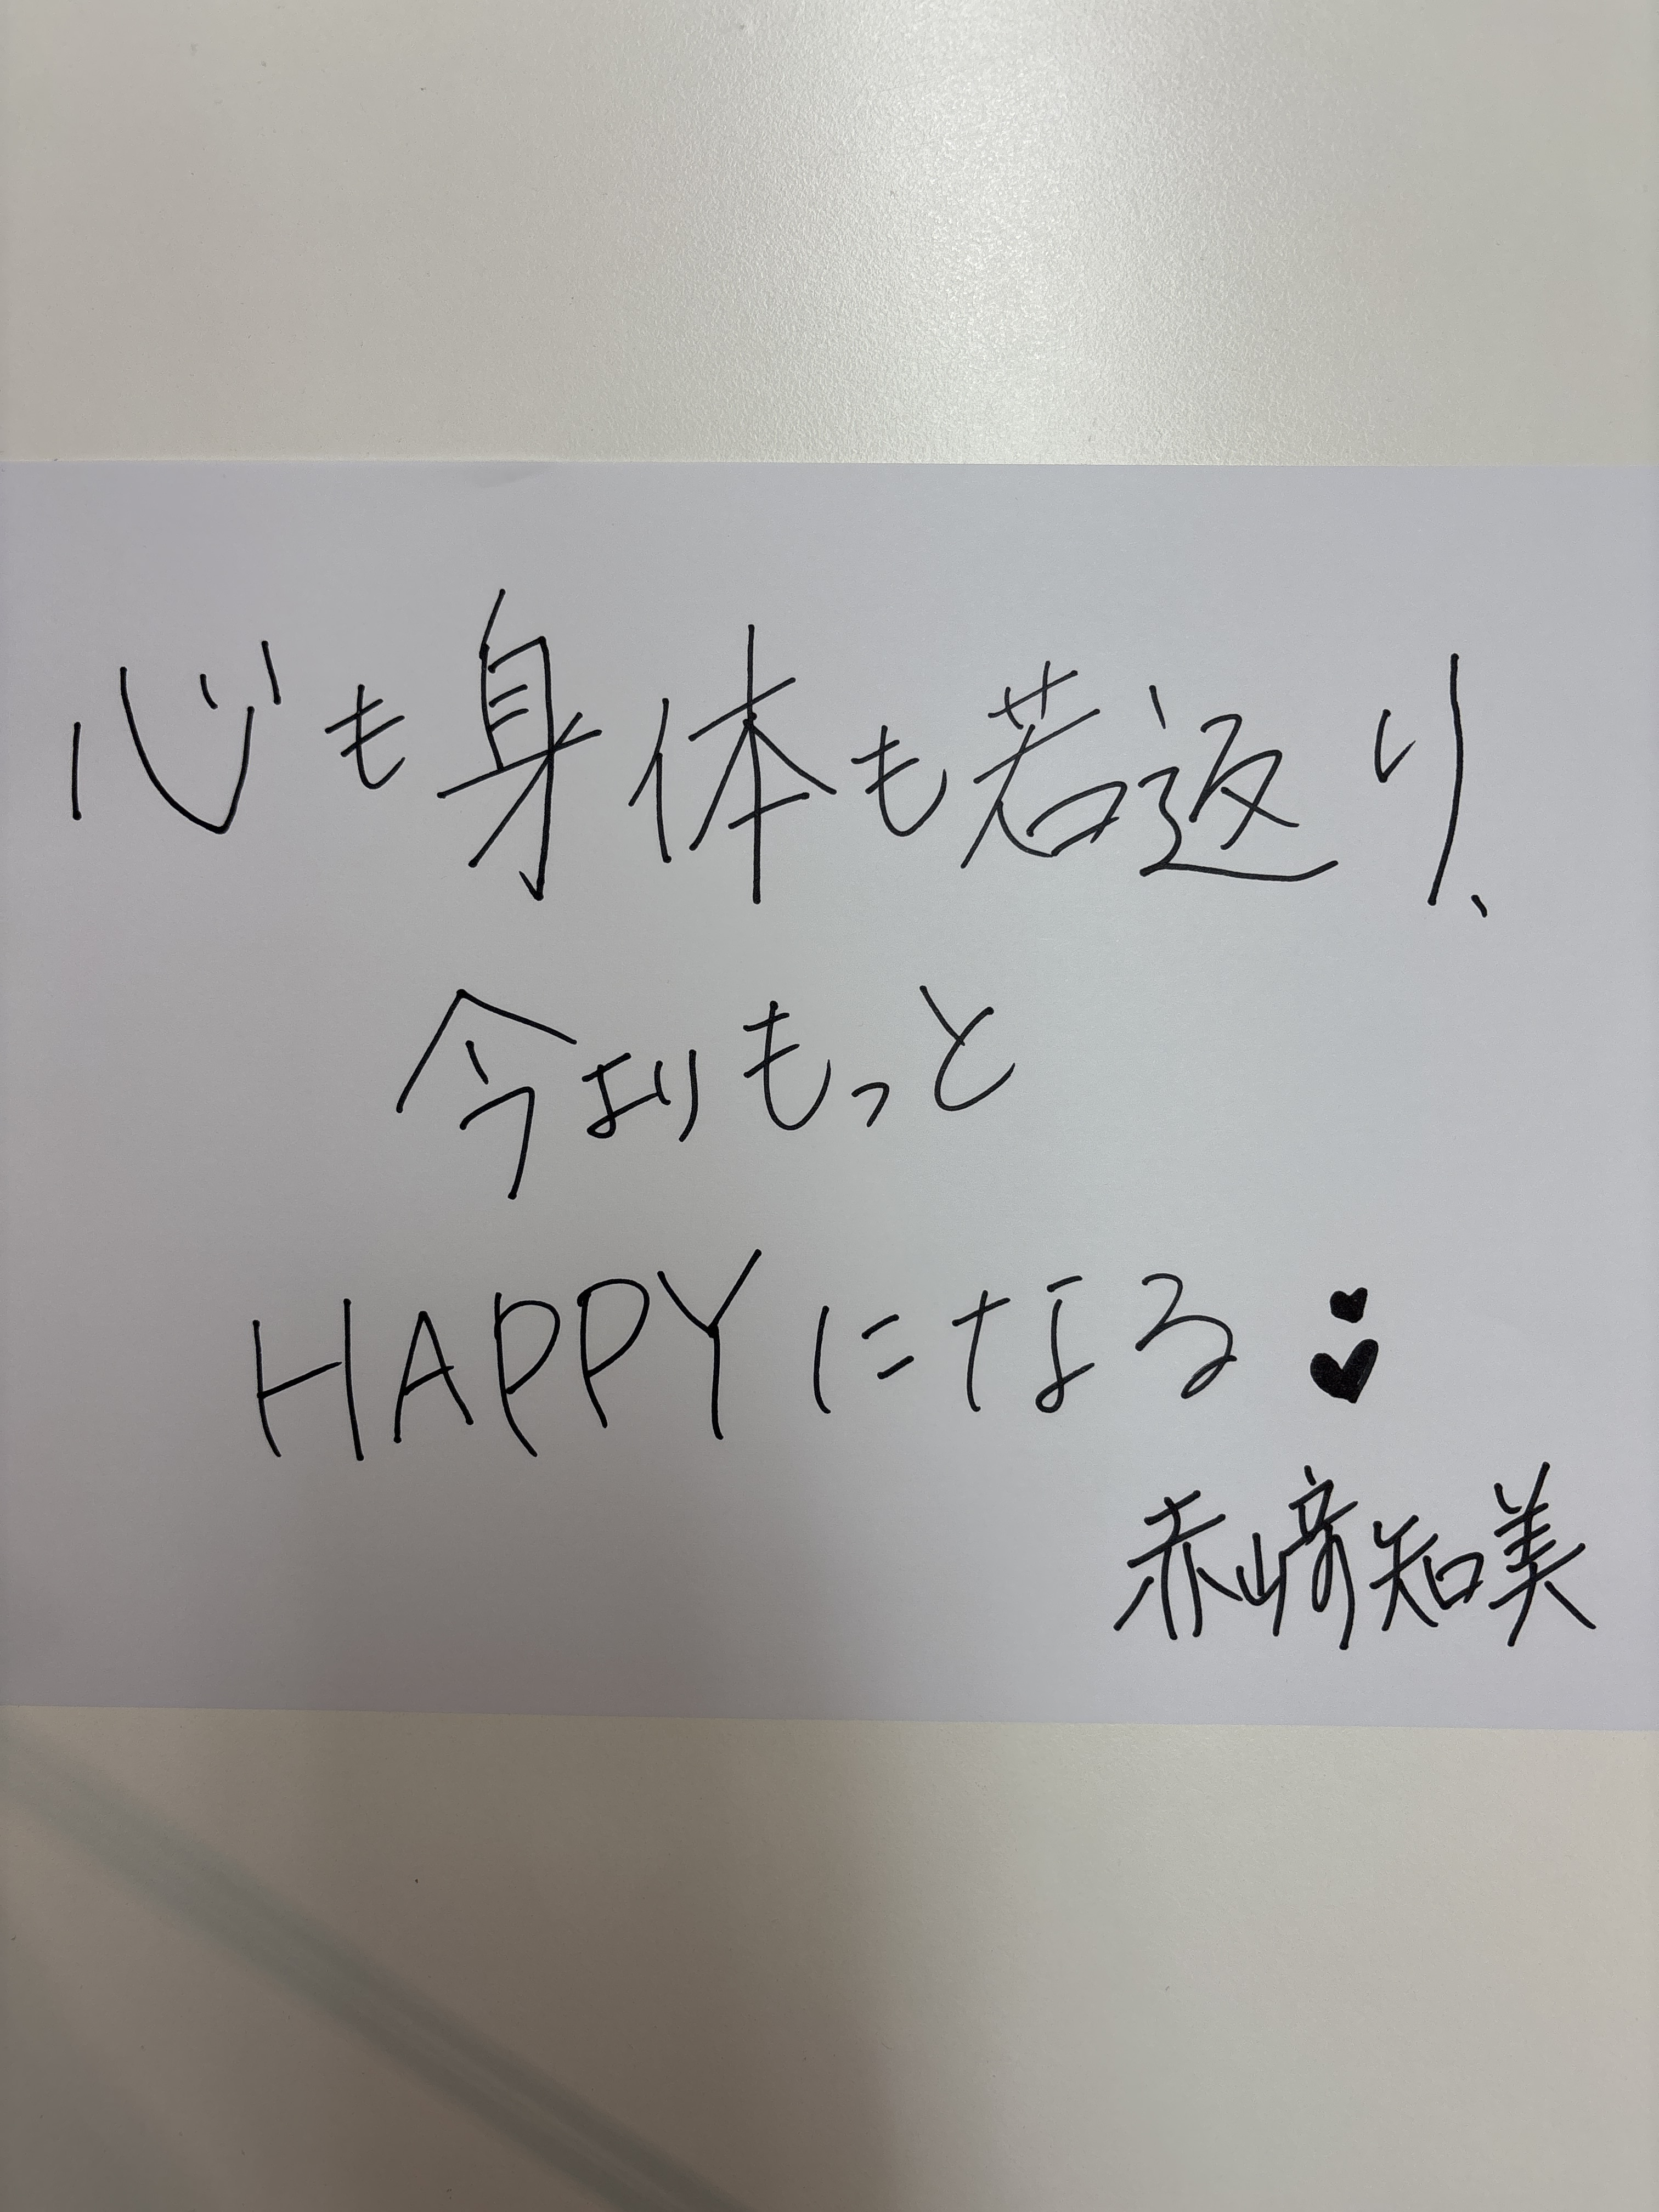 心も身体も若返り、
今よりもっと
HAPPYになる♥♥
赤﨑知美